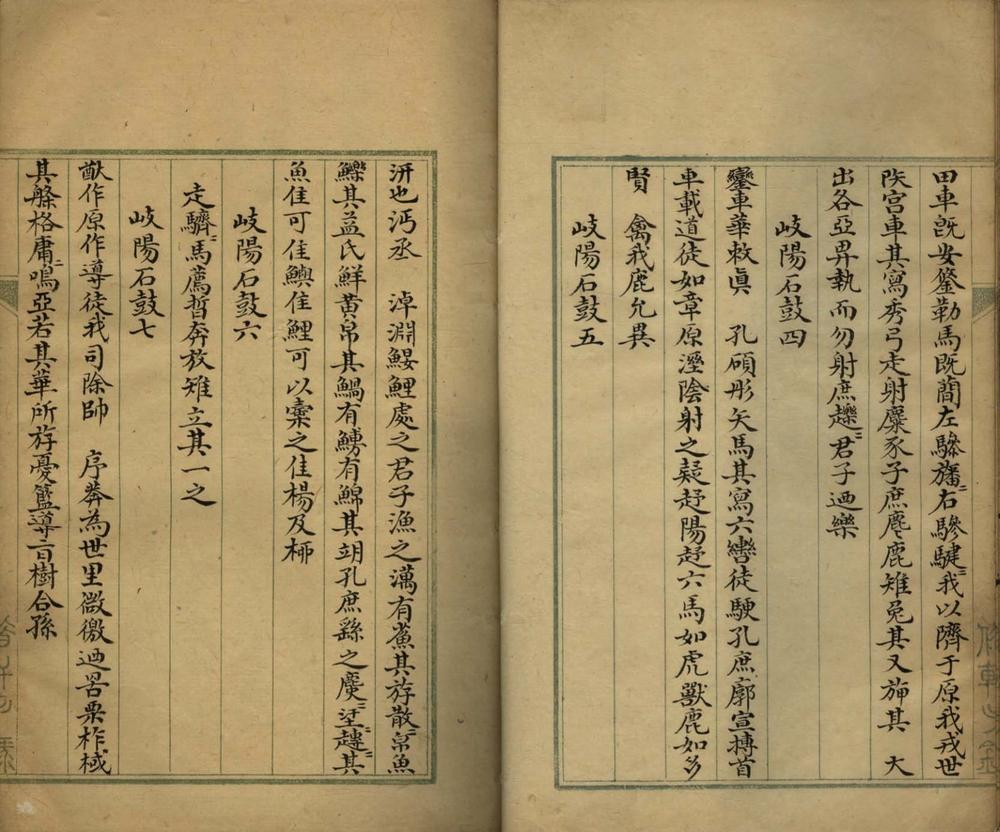 田車既安鋚勒馬既蕳左驂旛=右驂騝=我以隮于原我戎世
陜宮車其寫秀弓走射麋豕孔庶麀鹿雉兔其又旆其　大
出各亞畀執而勿射庶䟏=君子迺樂
岐陽石鼓四
鑾車華敕眞　孔碩彤矢馬其寫六轡徒駛孔庶廓宣搏首
車載道徒如章原溼陰射之㲋趕陽趕六馬如虎獸鹿如多
賢　禽我鹿允異
岐陽石鼓五
汧也沔丞　淖淵鰋鯉處之君子漁之澫有鯊其斿散=帛魚
鱳其盜氏鮮黄帛其鯿有鰟有鯾其朔孔庶臠之㚟=趩=其
魚隹可隹鱮隹鯉可以橐之隹楊及柳
岐陽石鼓六
走驕=馬薦晳奔放雉立其一之
岐陽石鼓七
猷作原作導徒我司除帥　序莽為世里微徼迺罟栗柞棫
其　格庸=鳴亞若其華所斿憂　導二百樹合孫